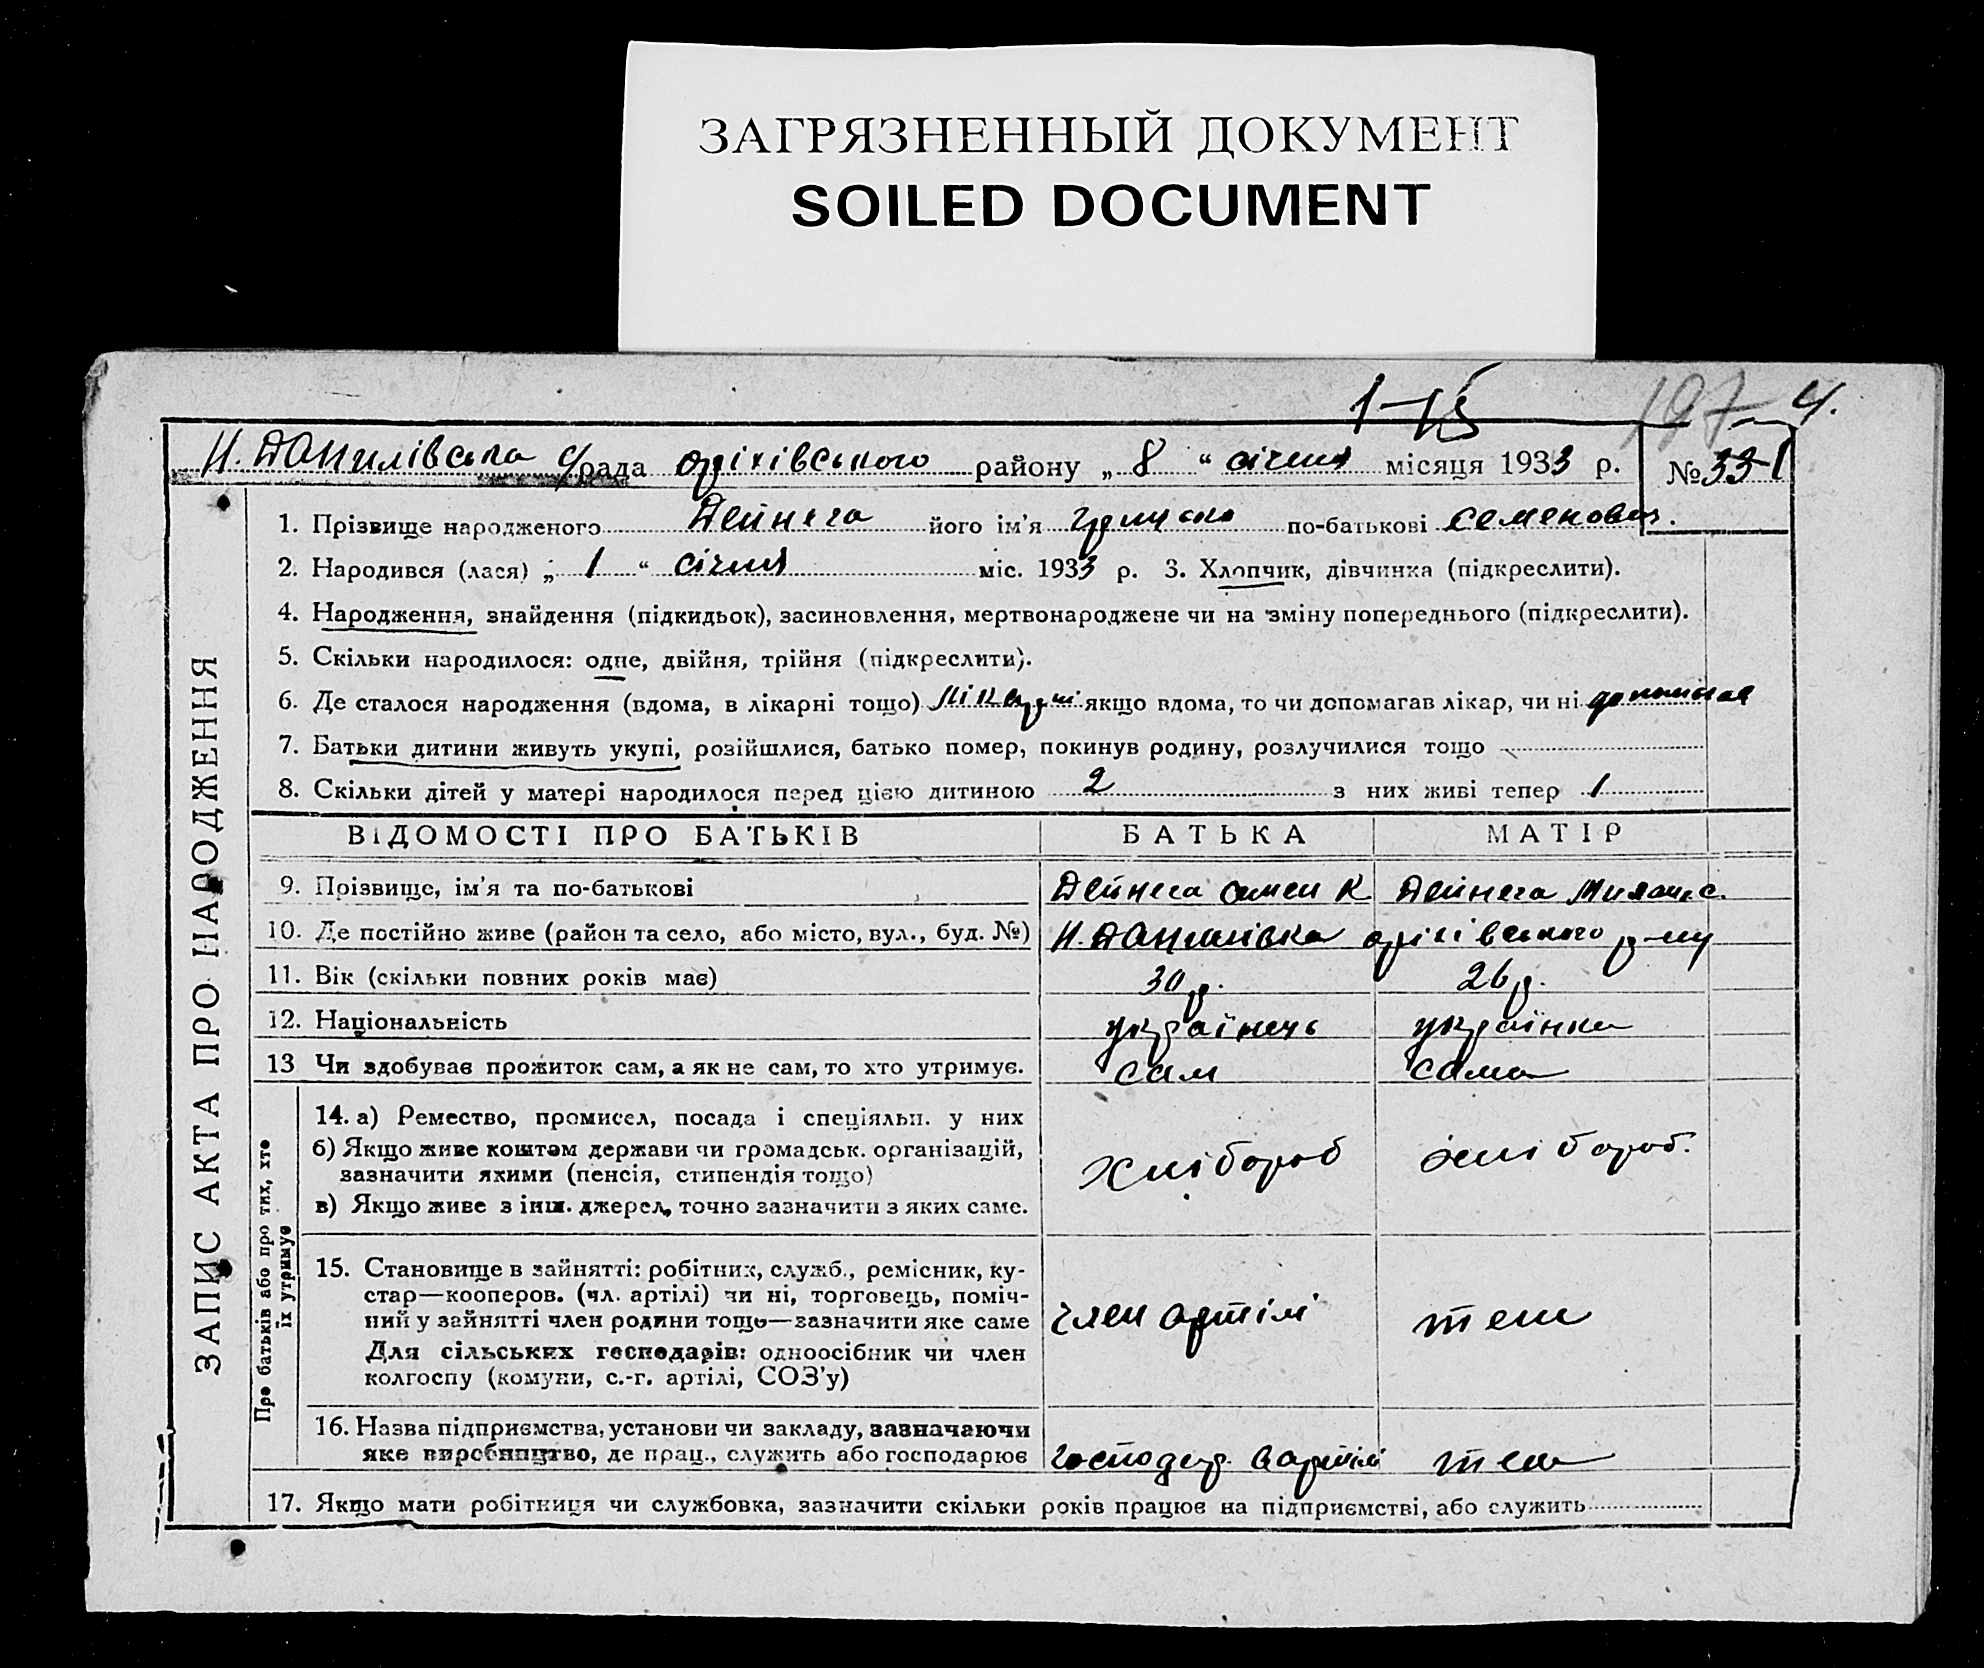 ЗАГРЯЗНЕННЫЙ ДОКУМЕНТ
SOILED DOCUMENT
1-15
197 4.
Н. Данилівська с/рада оріхівського району „ 8 “ січня місяця 1933 р. № 33-1
1. Прізвище народженого Дейнега його ім'я Грицько по-батькові Семенович.
2. Народився (лася) „ 1 “ січня міс. 1933 р. 3. Хлопчик, дівчинка (підкреслити).
4. Народження, знайдення (підкидьок), засиновлення, мертвонароджене чи на зміну попереднього (підкреслити).
5. Скільки народилося: одне, двійня, трійня (підкреслити).
6. Де сталося народження (вдома, в лікарні тощо) лікарні якщо вдома, то чи допомагав лікар, чи ні
7. Батьки дитини живуть укупі, розійшлися, батько помер, покинув родину, розлучилися тощо
8. Скільки дітей у матері народилося перед цією дитиною 2 з них живі тепер 1
ВІДОМОСТІ ПРО БАТЬКІВ БАТЬКА МАТІР
9. Прізвище, ім'я та по-батькові Дейнега Семен К. Дейнега
10. Де постійно живе (район та село, або місто, вул., буд. №) Н. Данилівка оріхівського р-ну
11. Вік (скільки повних років має) 30 р. 26 р.
12. Національність українець українка
13 Чи здобуває прожиток сам, а як не сам, то хто утримує. сам сама
14. а) Ремество, промисел, посада і спеціяльн. у них
б) Якщо живе коштом держави чи громадськ. організацій,
зазначити якими (пенсія, стипендія тощо) хлібороб хлібороб.
в) Якщо живе з інш. джерел, точно зазначити з яких саме.
15. Становище в зайнятті: робітник, служб., ремісник, ку-
стар—кооперов. (чл. артілі) чи ні, торговець, поміч-
ний у зайнятті член родини тощо—зазначити яке саме член артілі теж
Для сільських господарів: одноосібник чи член
колгоспу (комуни, с.-г. артілі, СОЗ'у)
16. Назва підприємства, установи чи закладу, зазначаючи
яке виробництво, де прац., служить або господарює господар. в артілі теж
17. Якщо мати робітниця чи службовка, зазначити скільки років працює на підприємстві, або служить
ЗАПИС АКТА ПРО НАРОДЖЕННЯ
Про батьків або про тих, хто
їх утримує